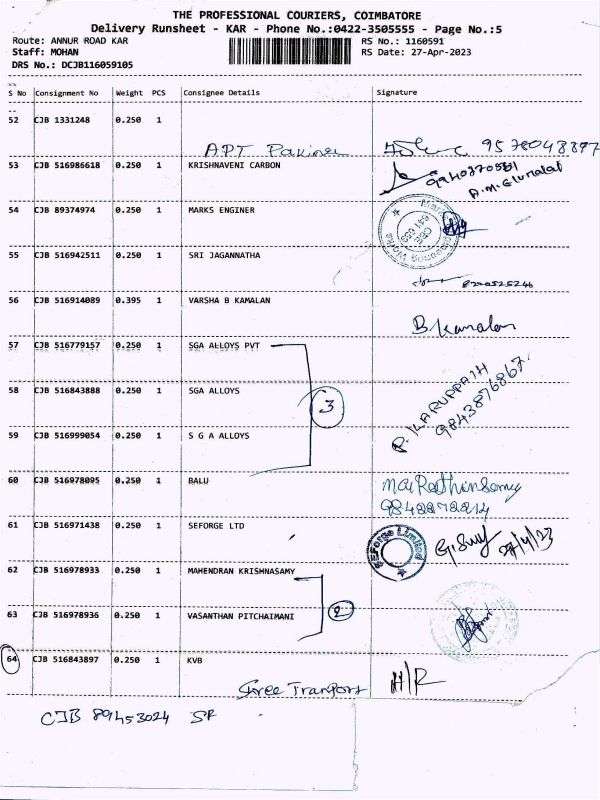 THE PROFESSIONAL COURIERS, COIMBATORE
Delivery Runsheet - KAR - Phone No.:0422-3505555 - Page No.:5
Route: ANNUR ROAD KAR RS No.: 1160591
Staff: MOHAN RS Date: 27-Apr-2023
DRS No.: DCJB116059105
S No Consignment No Weight PCS Consignee Details Signature
52 CJB 1331248 0.250 1
APT 9578048377
53 CJB 516986618 0.250 1 KRISHNAVENI CARBON
54 CJB 89374974 0.250 1 MARKS ENGINER
55 CJB 516942511 0.250 1 SRI JAGANNATHA
56 CJB 516914089 0.395 1 VARSHA B KAMALAN
B. Kamalan
57 CJB 516779157 0.250 1 SGA ALLOYS PVT
58 CJB 516843888 0.250 1 SGA ALLOYS
3
59 CJB 516999054 0.250 1 S G A ALLOYS
9843876867
60 CJB 516978095 0.250 1 BALU
61 CJB 516971438 0.250 1 SEFORGE LTD
SEForge Limited
27/4/23
62 CJB 516978933 0.250 1 MAHENDRAN KRISHNASAMY
2
63 CJB 516978936 0.250 1 VASANTHAN PITCHAIMANI
64 CJB 516843897 0.250 1 KVB
Shree Tranport H/R
CJB 89453024 SR